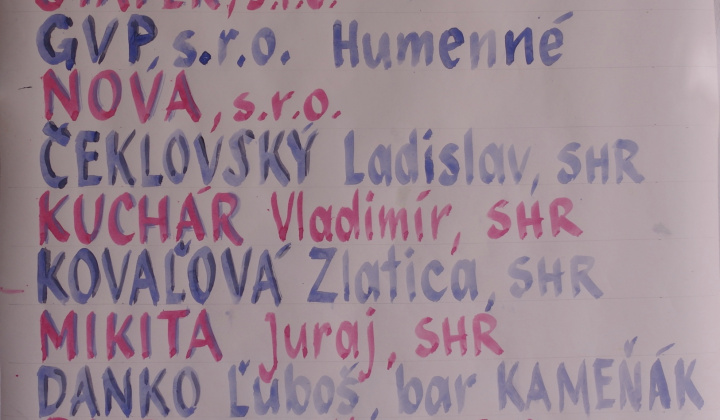 s.r.o.
GVP, s.r.o. Humenné
NOVÁ, s.r.o.
ČEKLOVSKÝ Ladislav, SHR
KUCHÁR Vladimír, SHR
KOVAĽOVÁ Zlatica, SHR
MIKITA Juraj, SHR
DANKO Ľuboš, bar KAMEŇÁK